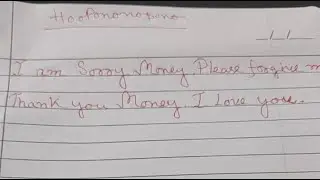 Hoofononopono
__/__/__
I am Sorry Money. Please forgive m
Thank you Money. I Love you.